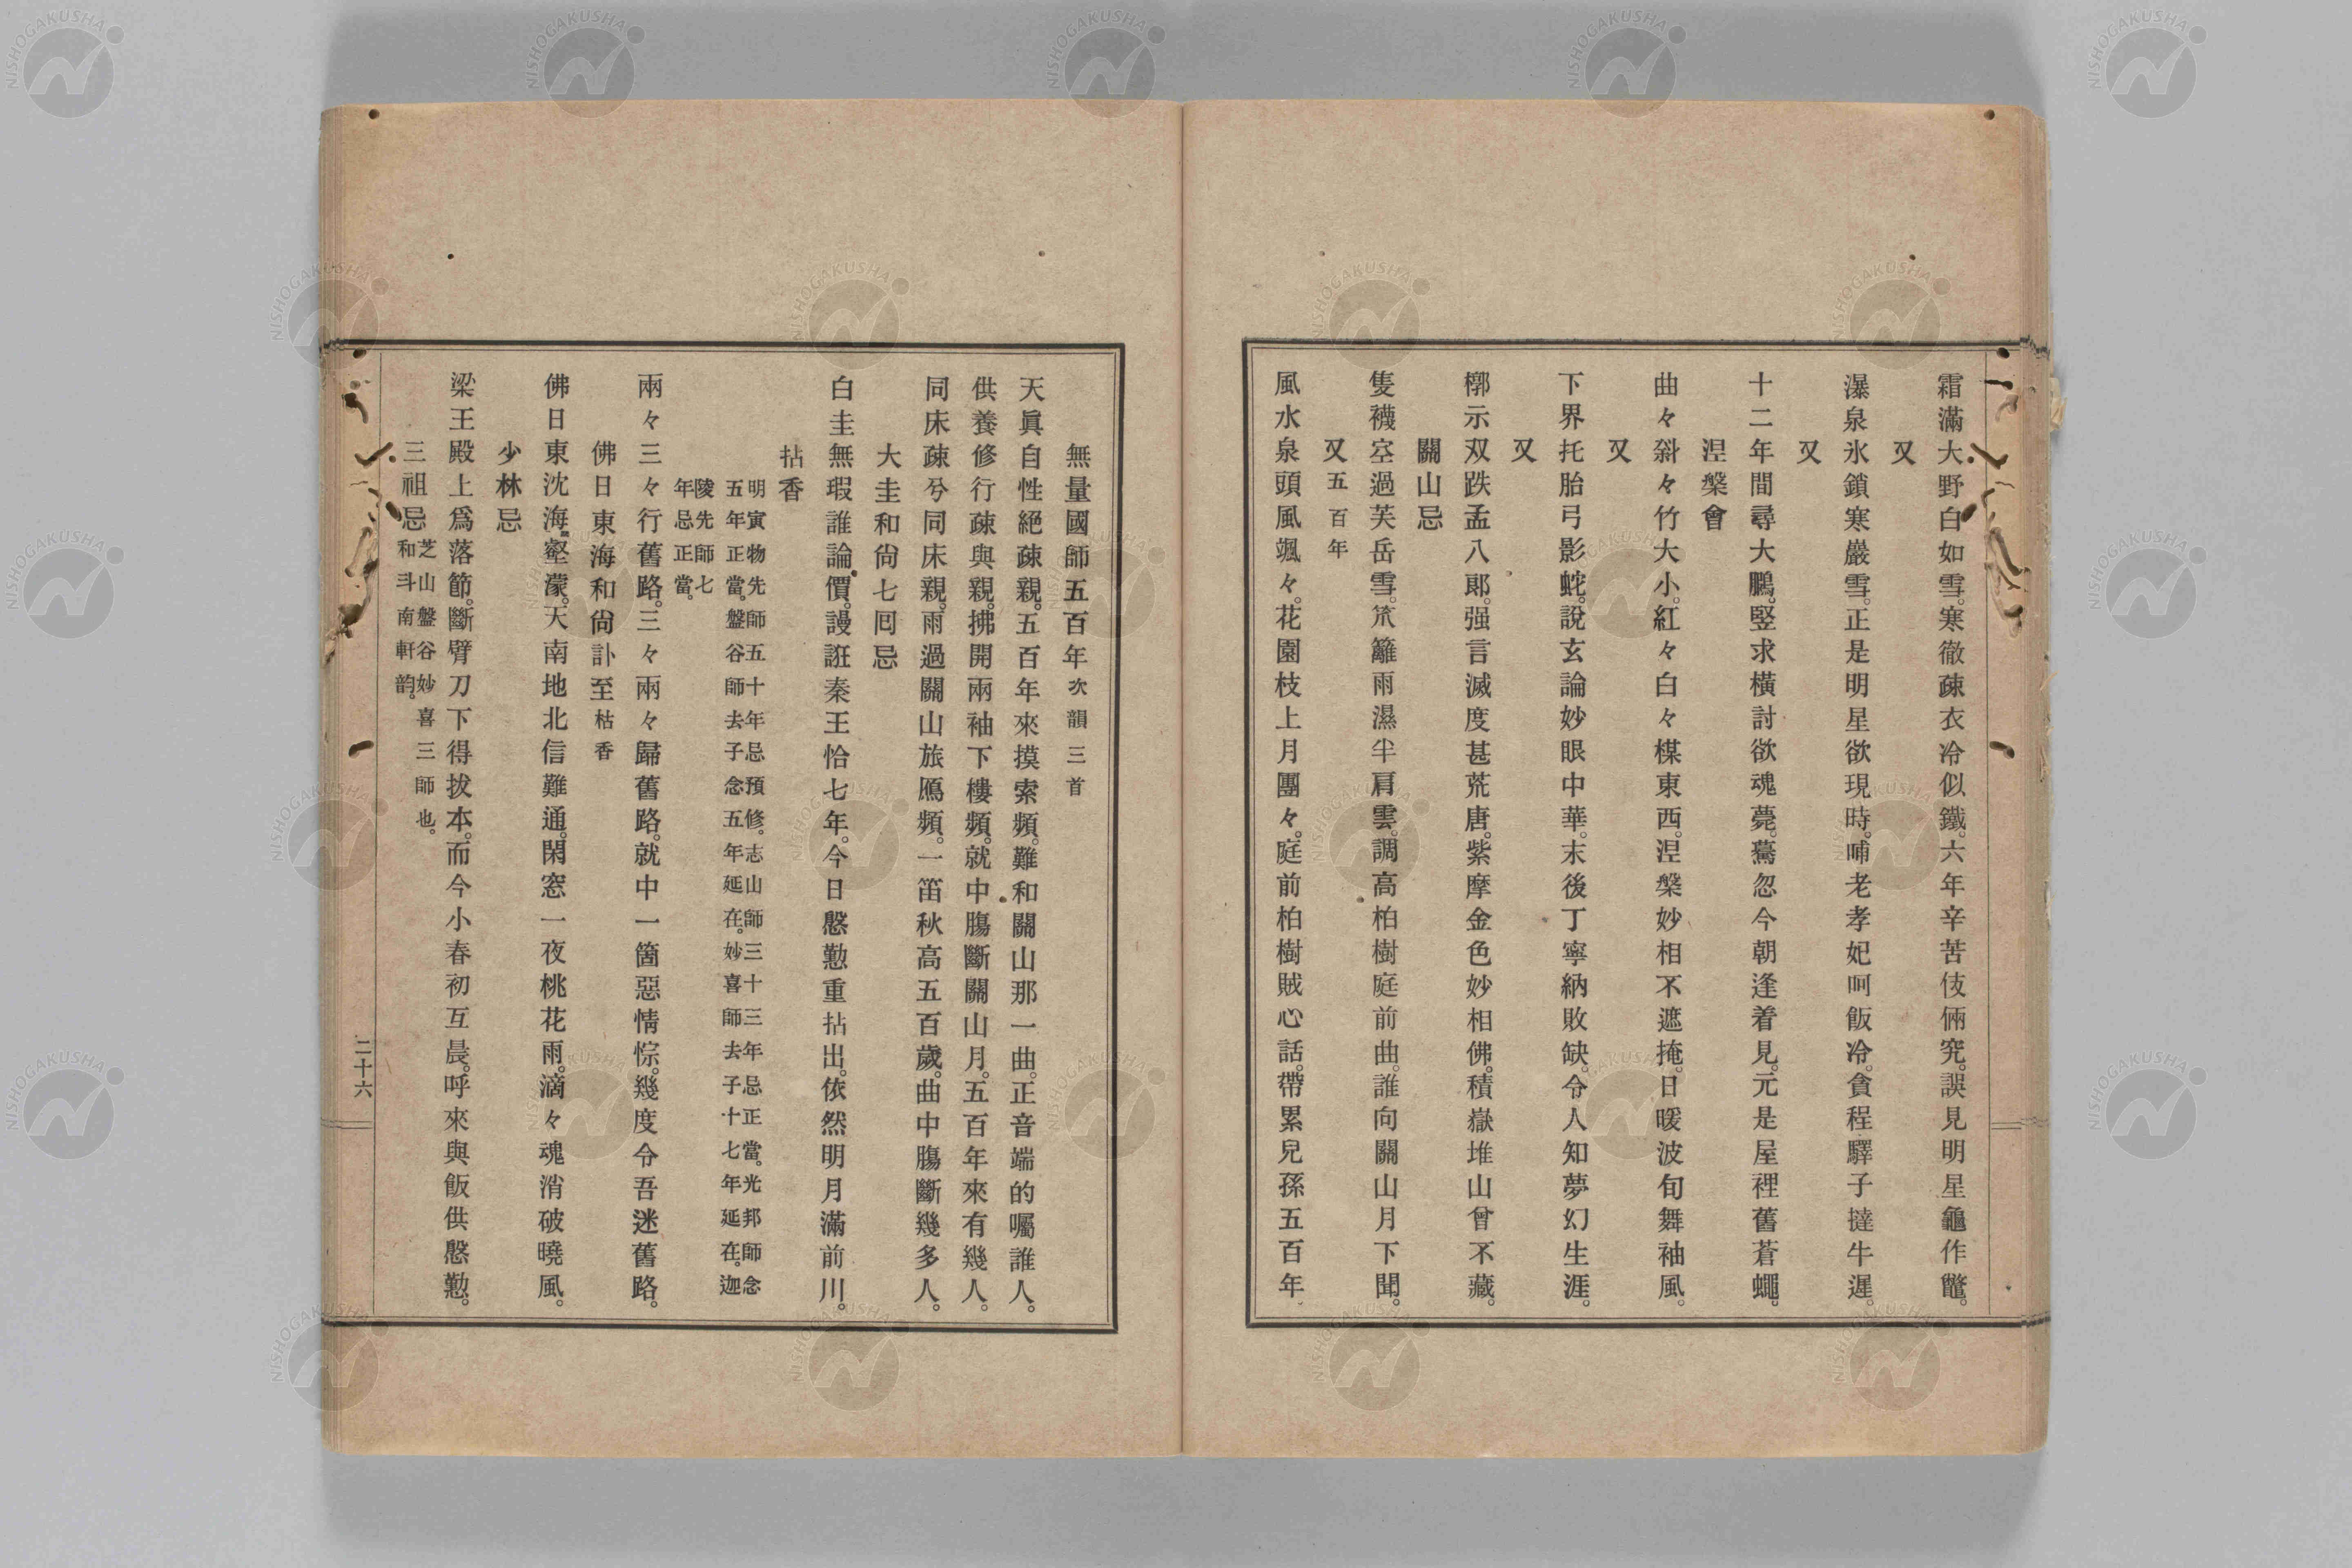 霜滿大野白如雪。寒徹疎衣冷似鐵。六年辛苦伎倆究。誤見明星龜作鼈。
又
瀑泉氷鎖寒巖雪。正是明星欲現時。哺老孝妃呵飯冷。貪程驛子撻牛遲。
又
十二年間尋大鵬。竪求橫討欲魂薨。驀忽今朝逢着見。元是屋裡舊蒼蠅。
涅槃會
曲々斜々竹大小。紅々白々楳東西。涅槃妙相不遮掩。日暖波旬舞袖風。
又
下界托胎弓影蛇。說玄論妙眼中華。末後丁寧納敗缺。令人知夢幻生涯。
又
槨示双趺孟八郞。强言滅度甚荒唐。紫摩金色妙相佛。積嶽堆山曾不藏。
關山忌
隻襪空過芙岳雪。笊籬雨濕半肩雲。調高柏樹庭前曲。誰向關山月下聞。
又五百年
風水泉頭風颯々。花園枝上月團々。庭前柏樹賊心話。帶累兒孫五百年
無量國師五百年次韻三首
天眞自性絕疎親。五百年來摸索頻。難和關山那一曲。正音端的囑誰人。
供養修行疎與親。拂開兩袖下樓頻。就中膓斷關山月。五百年來有幾人。
同床疎兮同床親。雨過關山旅鴈頻。一笛秋高五百歲。曲中膓斷幾多人。
大圭和尙七回忌
白圭無瑕誰論價。謾誑秦王恰七年。今日慇懃重拈出。依然明月滿前川。
拈香
明寅物先師五十年忌預修。志山師三十三年忌正當。光邦師念
五年正當。盤谷師去子念五年延在。妙喜師去子十七年延在。迦
陵先師七
年忌正當。
兩々三々行舊路。三々兩々歸舊路。就中一箇惡情悰。幾度令吾迷舊路。
佛日東海和尙訃至枯香
佛日東沈海壑濛。天南地北信難通。閑窓一夜桃花雨。滴々魂消破曉風。
少林忌
梁王殿上爲落節。斷臂刀下得拔本。而今小春初互晨。呼來與飯供慇懃。
三祖忌
芝山盤谷妙喜三師也。
和斗南軒韵。
二十六